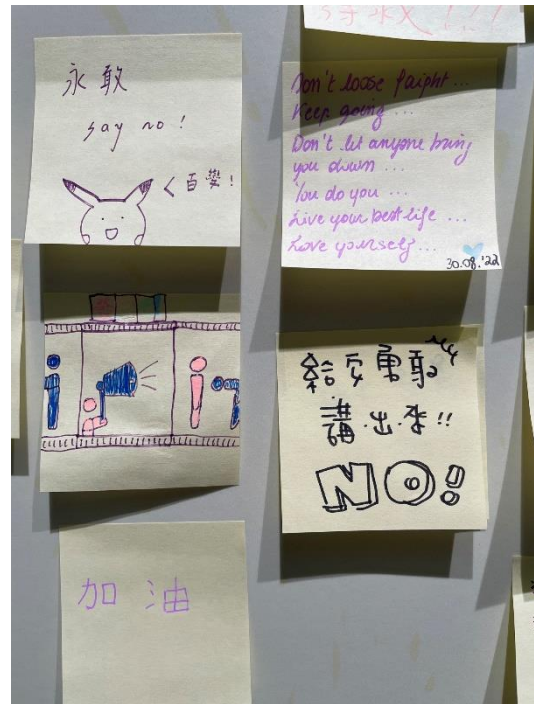 永敢
say no!
百變!
Don't loose faight...
Keep going...
Don't let anyone bring
you down...
You do you...
Live your best life...
Love yourself...
30.08.'22
講出來!!
NO!
加油